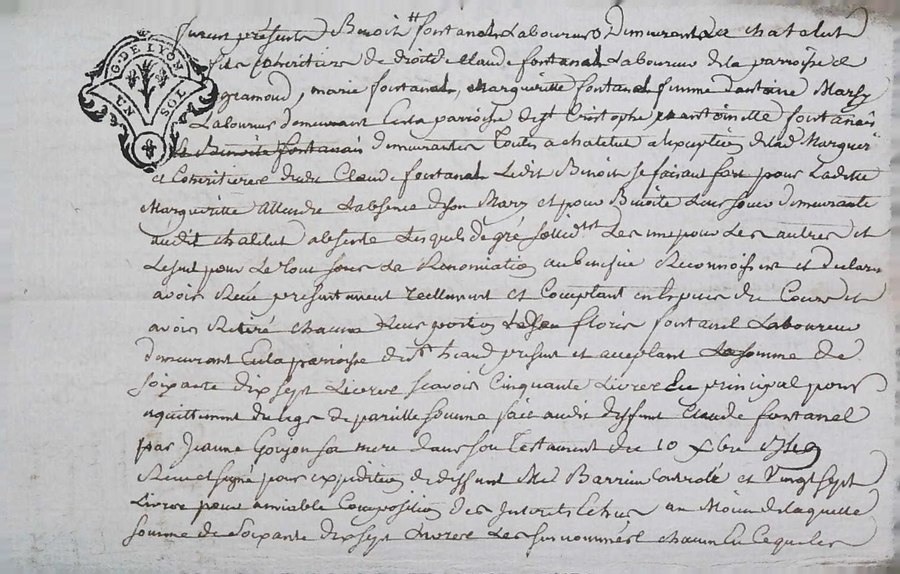 G. DE LYON
UN SOL
furent présents Benoit fontanel Laboureur Demeurant a chatelut
fils cohéritier de droit de Claude fontanel Laboureur de la parroisse de
gramond, marie fontanel, Marguerite fontanel femme dantoine Marsy
Laboureur demeurant en la parroisse de st Cristophe, antoinette fontanel
Benoite fontanais demeurantes Toutes a chatelut a lexception de lad Marguerite
et Cohéritieres dudit Claude fontanel Ledit Benoit se faisant fort pour Laditte
Marguerite Attendre Labsence de son Mary et pour Benoite Leur soeur demeurante
audit chatelut absente Lesquels de gré sollidrt Les uns pour Les autres et
Le seul pour Le Tout sous La Renonciation au benefice Reconnoissent et declarent
avoir Reçu présentement réellement et Comptant en Espèces du Cours et
avoir Retiré chacun Leur portion de florie fontanel Laboureur
demeurant en la parroisse de present et acceptant La somme de
soixante dix sept Livres scavoir Cinquante Livres du principal pour
aquittement du legs de pareille somme fait audit deffunt Claude fontanel
par Jeanne Goujon sa mere dans son Testament du 10 xbre
Reçu et signé pour expedition de deffunt Me Barrieu controlé et Vingt sept
Livres pour amiable Composition des Interets Echus au Moien de laquelle
somme de Soixante dix sept Livres Les surnommés chacun En ce qui les